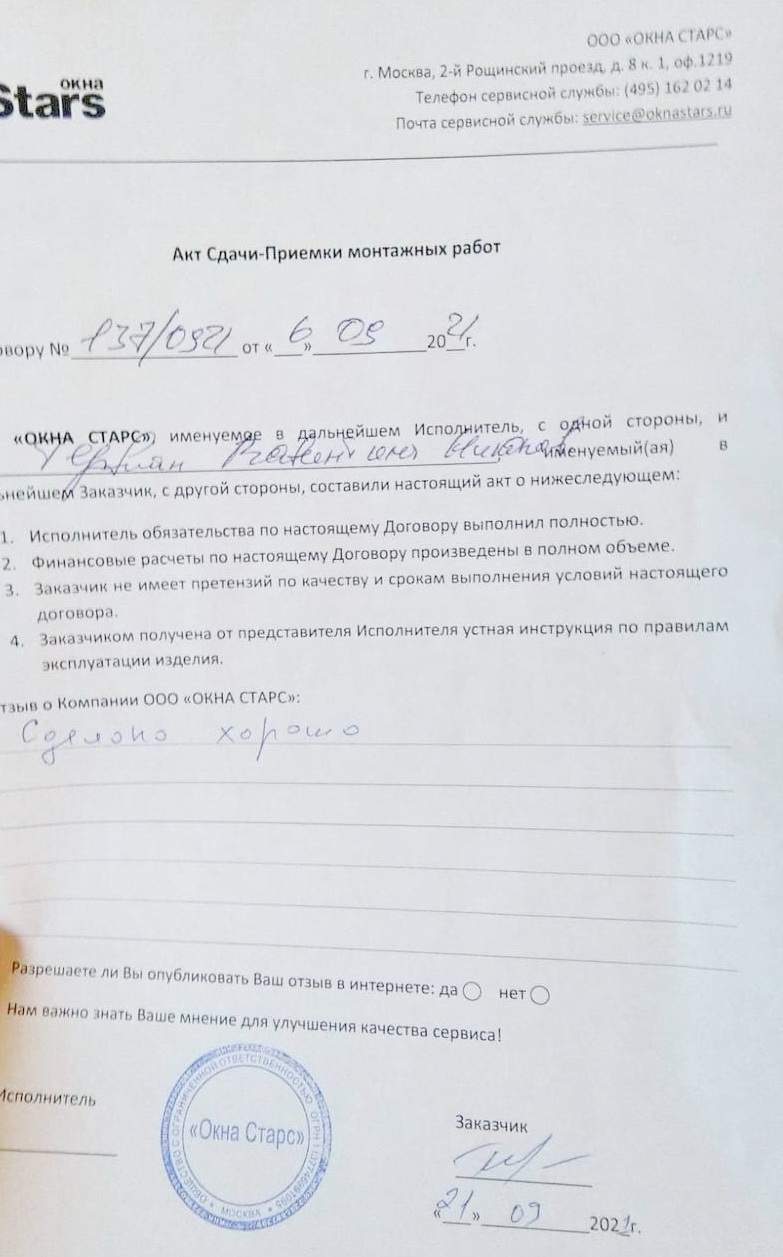 ООО «ОКНА СТАРС»
г. Москва, 2-й Рощинский проезд, д. 8 к. 1, оф.1219
Телефон сервисной службы: (495) 162 02 14
Почта сервисной службы: service@oknastars.ru
окна
Stars
Акт Сдачи-Приемки монтажных работ
овору № 137/0921 от «6» 09 2021г.
«ОКНА СТАРС», именуемое в дальнейшем Исполнитель, с одной стороны, и
именуемый(ая) в
ьнейшем Заказчик, с другой стороны, составили настоящий акт о нижеследующем:
1. Исполнитель обязательства по настоящему Договору выполнил полностью.
2. Финансовые расчеты по настоящему Договору произведены в полном объеме.
3. Заказчик не имеет претензий по качеству и срокам выполнения условий настоящего
договора.
4. Заказчиком получена от представителя Исполнителя устная инструкция по правилам
эксплуатации изделия.
тзыв о Компании ООО «ОКНА СТАРС»:
Сделано хорошо
Разрешаете ли Вы опубликовать Ваш отзыв в интернете: да нет
Нам важно знать Ваше мнение для улучшения качества сервиса!
Исполнитель
ОБЩЕСТВО С ОГРАНИЧЕННОЙ ОТВЕТСТВЕННОСТЬЮ ОГРН
«Окна Старс»
МОСКВА
Заказчик
«21» 09 2021г.